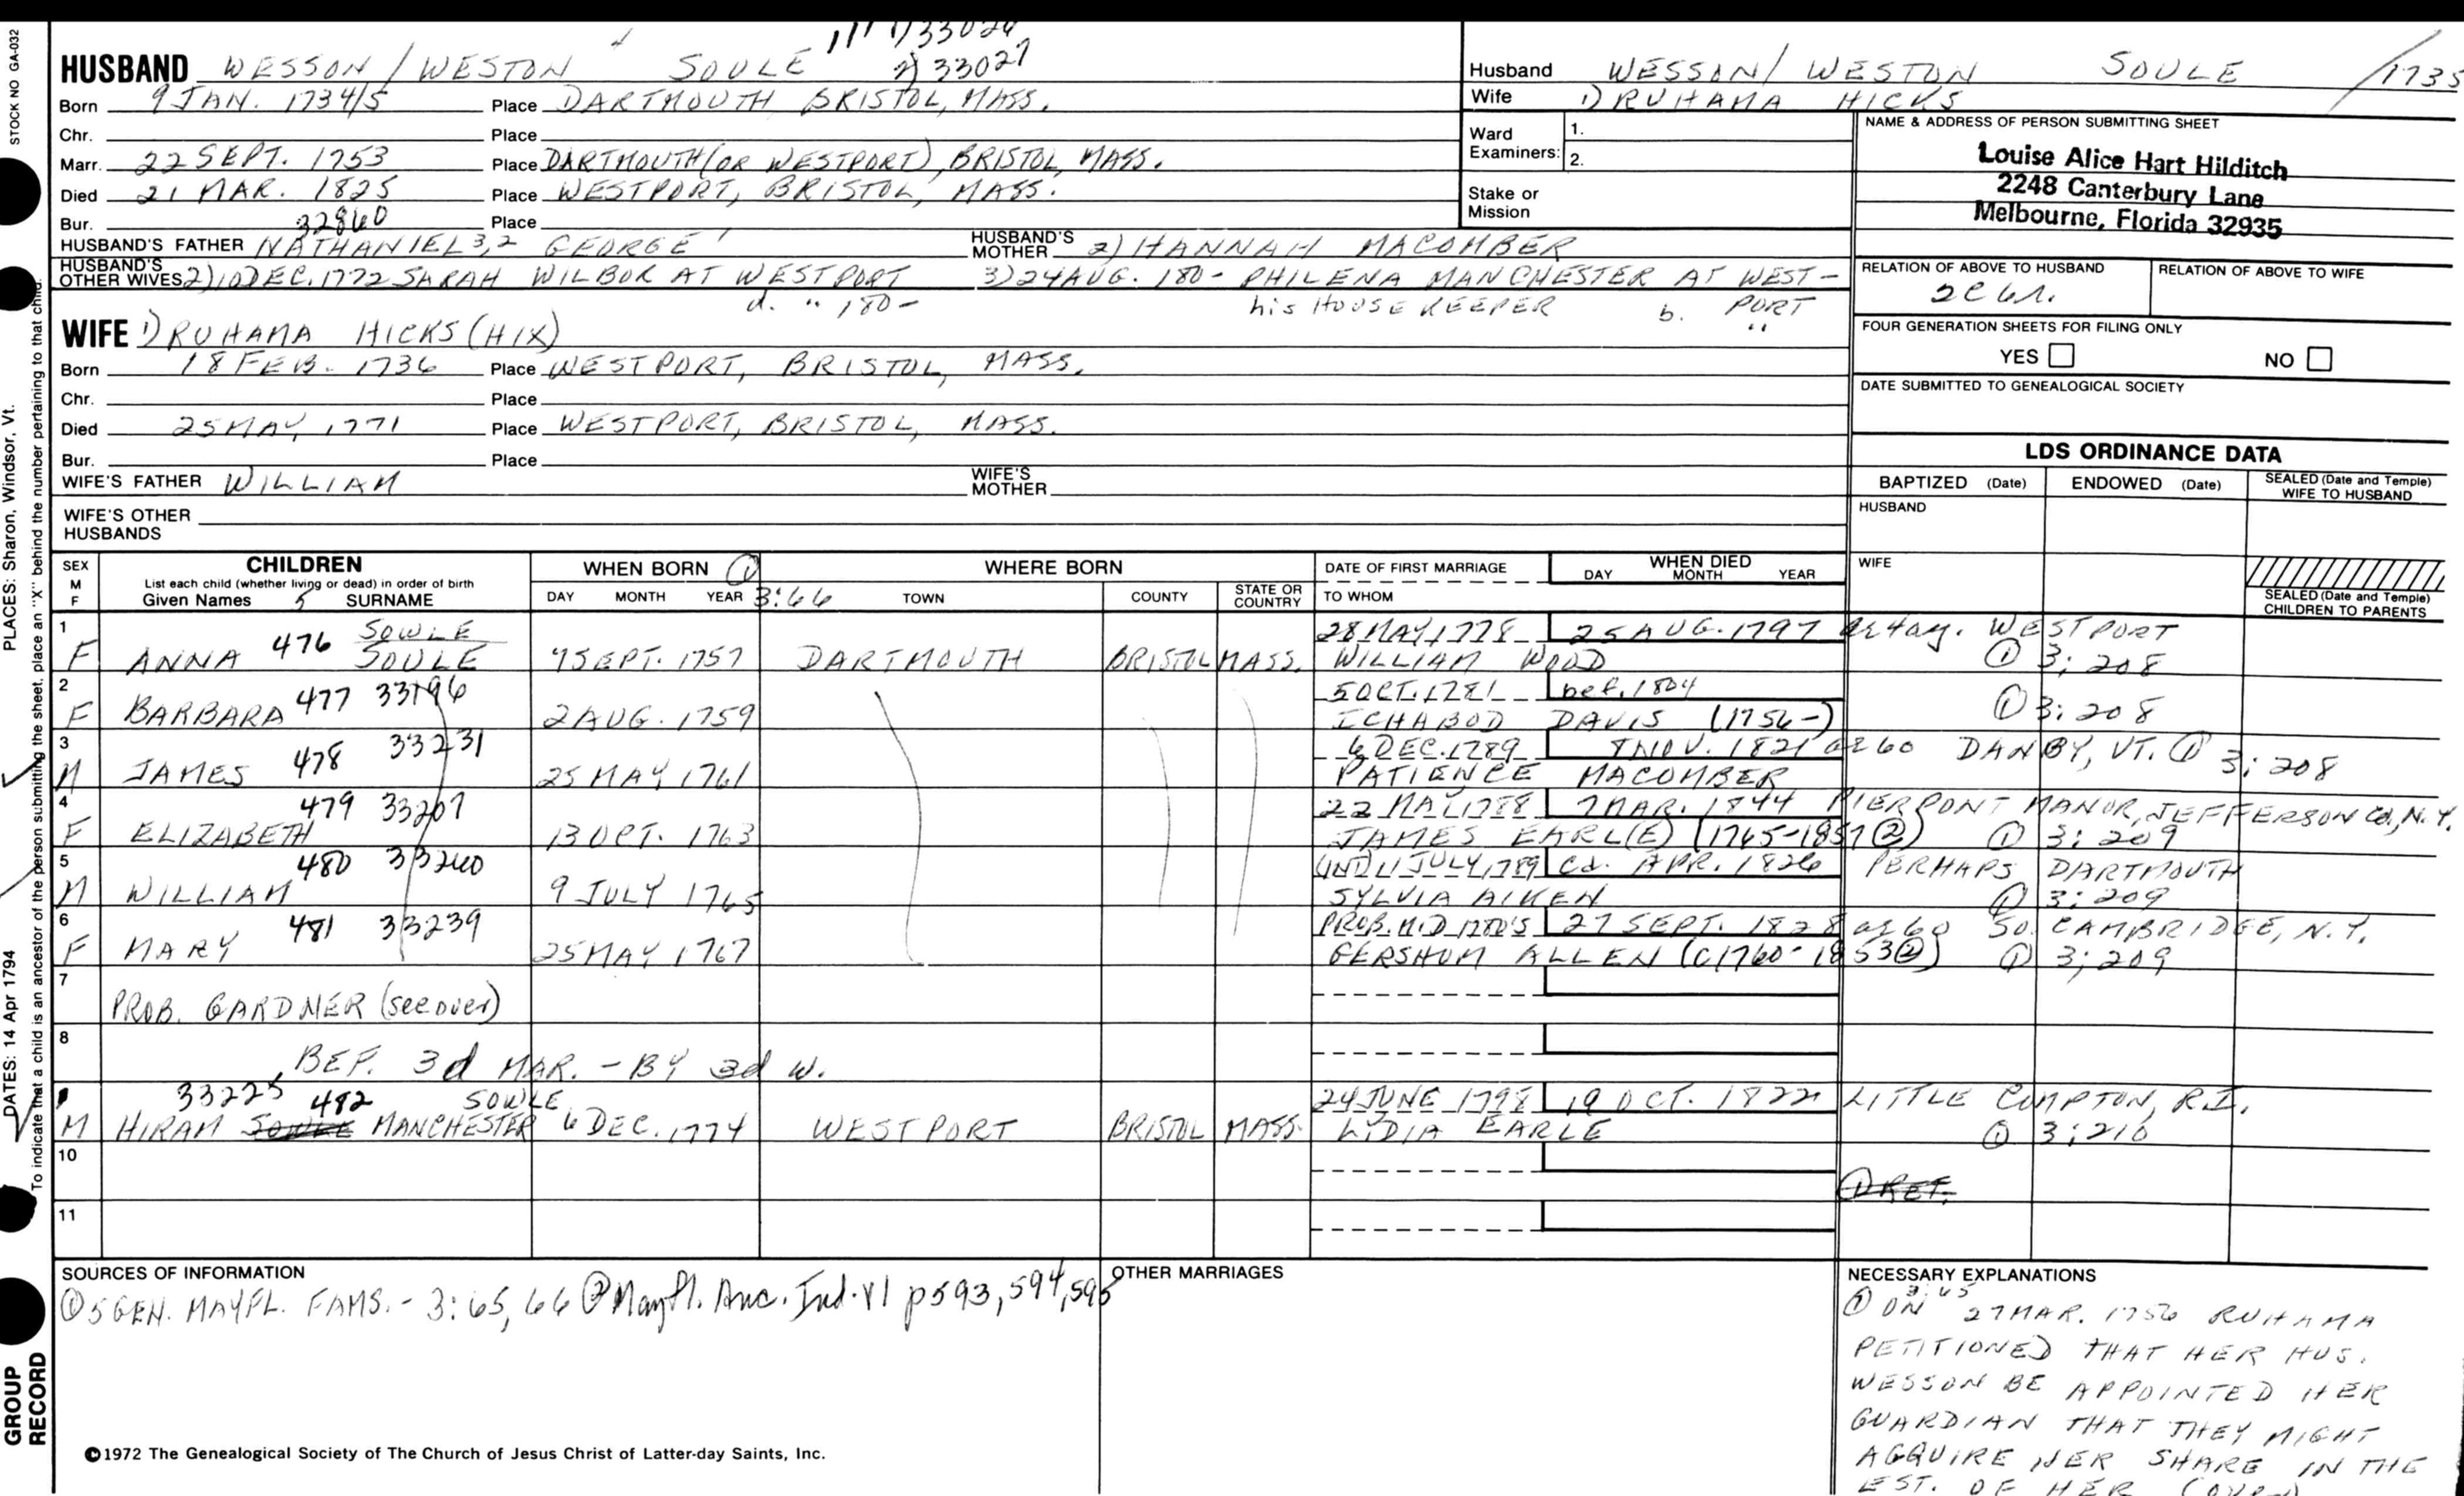 STOCK NO GA-032
PLACES: Sharon, Windsor, Vt.
DATES: 14 Apr 1794
To indicate that a child is an ancestor of the person submitting the sheet, place an "X" behind the number pertaining to that child.
GROUP
RECORD
33027
HUSBAND WESSON / WESTON SOULE
Born 9 JAN. 1734/5 Place DARTMOUTH BRISTOL, MASS.
Chr. Place
Marr. 22 SEPT. 1753 Place DARTMOUTH (OR WESTPORT), BRISTOL, MASS.
Died 21 MAR. 1825 Place WESTPORT, BRISTOL, MASS.
Bur. 32860 Place
HUSBAND'S FATHER NATHANIEL 3,2 GEORGE 1 HUSBAND'S MOTHER 2) HANNAH MACOMBER
HUSBAND'S OTHER WIVES 2) 10 DEC. 1772 SARAH WILBOR AT WESTPORT 3) 24 AUG. 180- PHILENA MANCHESTER AT WEST-
d. " 180- his HOUSE KEEPER b. PORT
"
WIFE 1) RUHAMA HICKS (HIX)
Born 18 FEB. 1736 Place WESTPORT, BRISTOL, MASS.
Chr. Place
Died 25 MAY 1771 Place WESTPORT, BRISTOL, MASS.
Bur. Place
WIFE'S FATHER WILLIAM WIFE'S MOTHER
WIFE'S OTHER HUSBANDS
Husband WESSON / WESTON SOULE /1735
Wife 1) RUHAMA HICKS
Ward Examiners: 1.
2.
Stake or Mission
NAME & ADDRESS OF PERSON SUBMITTING SHEET
Louise Alice Hart Hilditch
2248 Canterbury Lane
Melbourne, Florida 32935
RELATION OF ABOVE TO HUSBAND RELATION OF ABOVE TO WIFE
2C 6r.
FOUR GENERATION SHEETS FOR FILING ONLY
YES NO
DATE SUBMITTED TO GENEALOGICAL SOCIETY
LDS ORDINANCE DATA
BAPTIZED (Date) ENDOWED (Date) SEALED (Date and Temple) WIFE TO HUSBAND
HUSBAND
WIFE
SEALED (Date and Temple) CHILDREN TO PARENTS
SEX M F CHILDREN WHEN BORN ① WHERE BORN DATE OF FIRST MARRIAGE WHEN DIED
List each child (whether living or dead) in order of birth
Given Names 5 SURNAME DAY MONTH YEAR 3:66 TOWN COUNTY STATE OR COUNTRY TO WHOM DAY MONTH YEAR
1 476 SOWLE 28 MAY 1778 25 AUG. 1797 WESTPORT
F ANNA SOULE 7 SEPT. 1757 DARTMOUTH BRISTOL MASS. WILLIAM WOOD ① 3: 208
2 477 33196 5 OCT. 1781 bef. 1804
F BARBARA 2 AUG. 1759 ICHABOD DAVIS (1756-) ① 3: 208
3 478 33231 6 DEC. 1789 NOV. 1821 ae 60 DANBY, VT. ① 3: 208
M JAMES 25 MAY 1761 PATIENCE MACOMBER
4 479 33207 22 MAY 1788 7 MAR. 1844 PIERPONT MANOR, JEFFERSON CO., N.Y.
F ELIZABETH 13 OCT. 1763 JAMES EARL(E) (1765-1857 ②) ① 3: 209
5 480 33240 (INT) 11 JULY 1789 Cd. APR. 1826 PERHAPS DARTMOUTH
M WILLIAM 9 JULY 1765 SYLVIA AIKEN ① 3: 209
6 481 33239 PROB. MID 1780'S 27 SEPT. 1828 ae 60 SO. CAMBRIDGE, N.Y.
F MARY 25 MAY 1767 GERSHOM ALLEN (C1760-1853 ②) ① 3: 209
7
PROB. GARDNER (see over)
8
BEF. 3d MAR. - BY 3d W.
33225 482 SOWLE 24 JUNE 1798 19 OCT. 1822 LITTLE COMPTON, R.I.
M HIRAM SOWLE MANCHESTER 6 DEC. 1774 WESTPORT BRISTOL MASS. LYDIA EARLE ① 3: 210
10
① REF.
11
SOURCES OF INFORMATION
① 5 GEN. MAYFL. FAMS. - 3: 65, 66 ② Mayfl. Anc. Ind. V1 p 593, 594, 595
OTHER MARRIAGES
NECESSARY EXPLANATIONS
3:65
① ON 27 MAR. 1756 RUHAMA
PETITIONED THAT HER HUS.
WESSON BE APPOINTED HER
GUARDIAN THAT THEY MIGHT
AGQUIRE HER SHARE IN THE
EST. OF HER (OVER)
©1972 The Genealogical Society of The Church of Jesus Christ of Latter-day Saints, Inc.